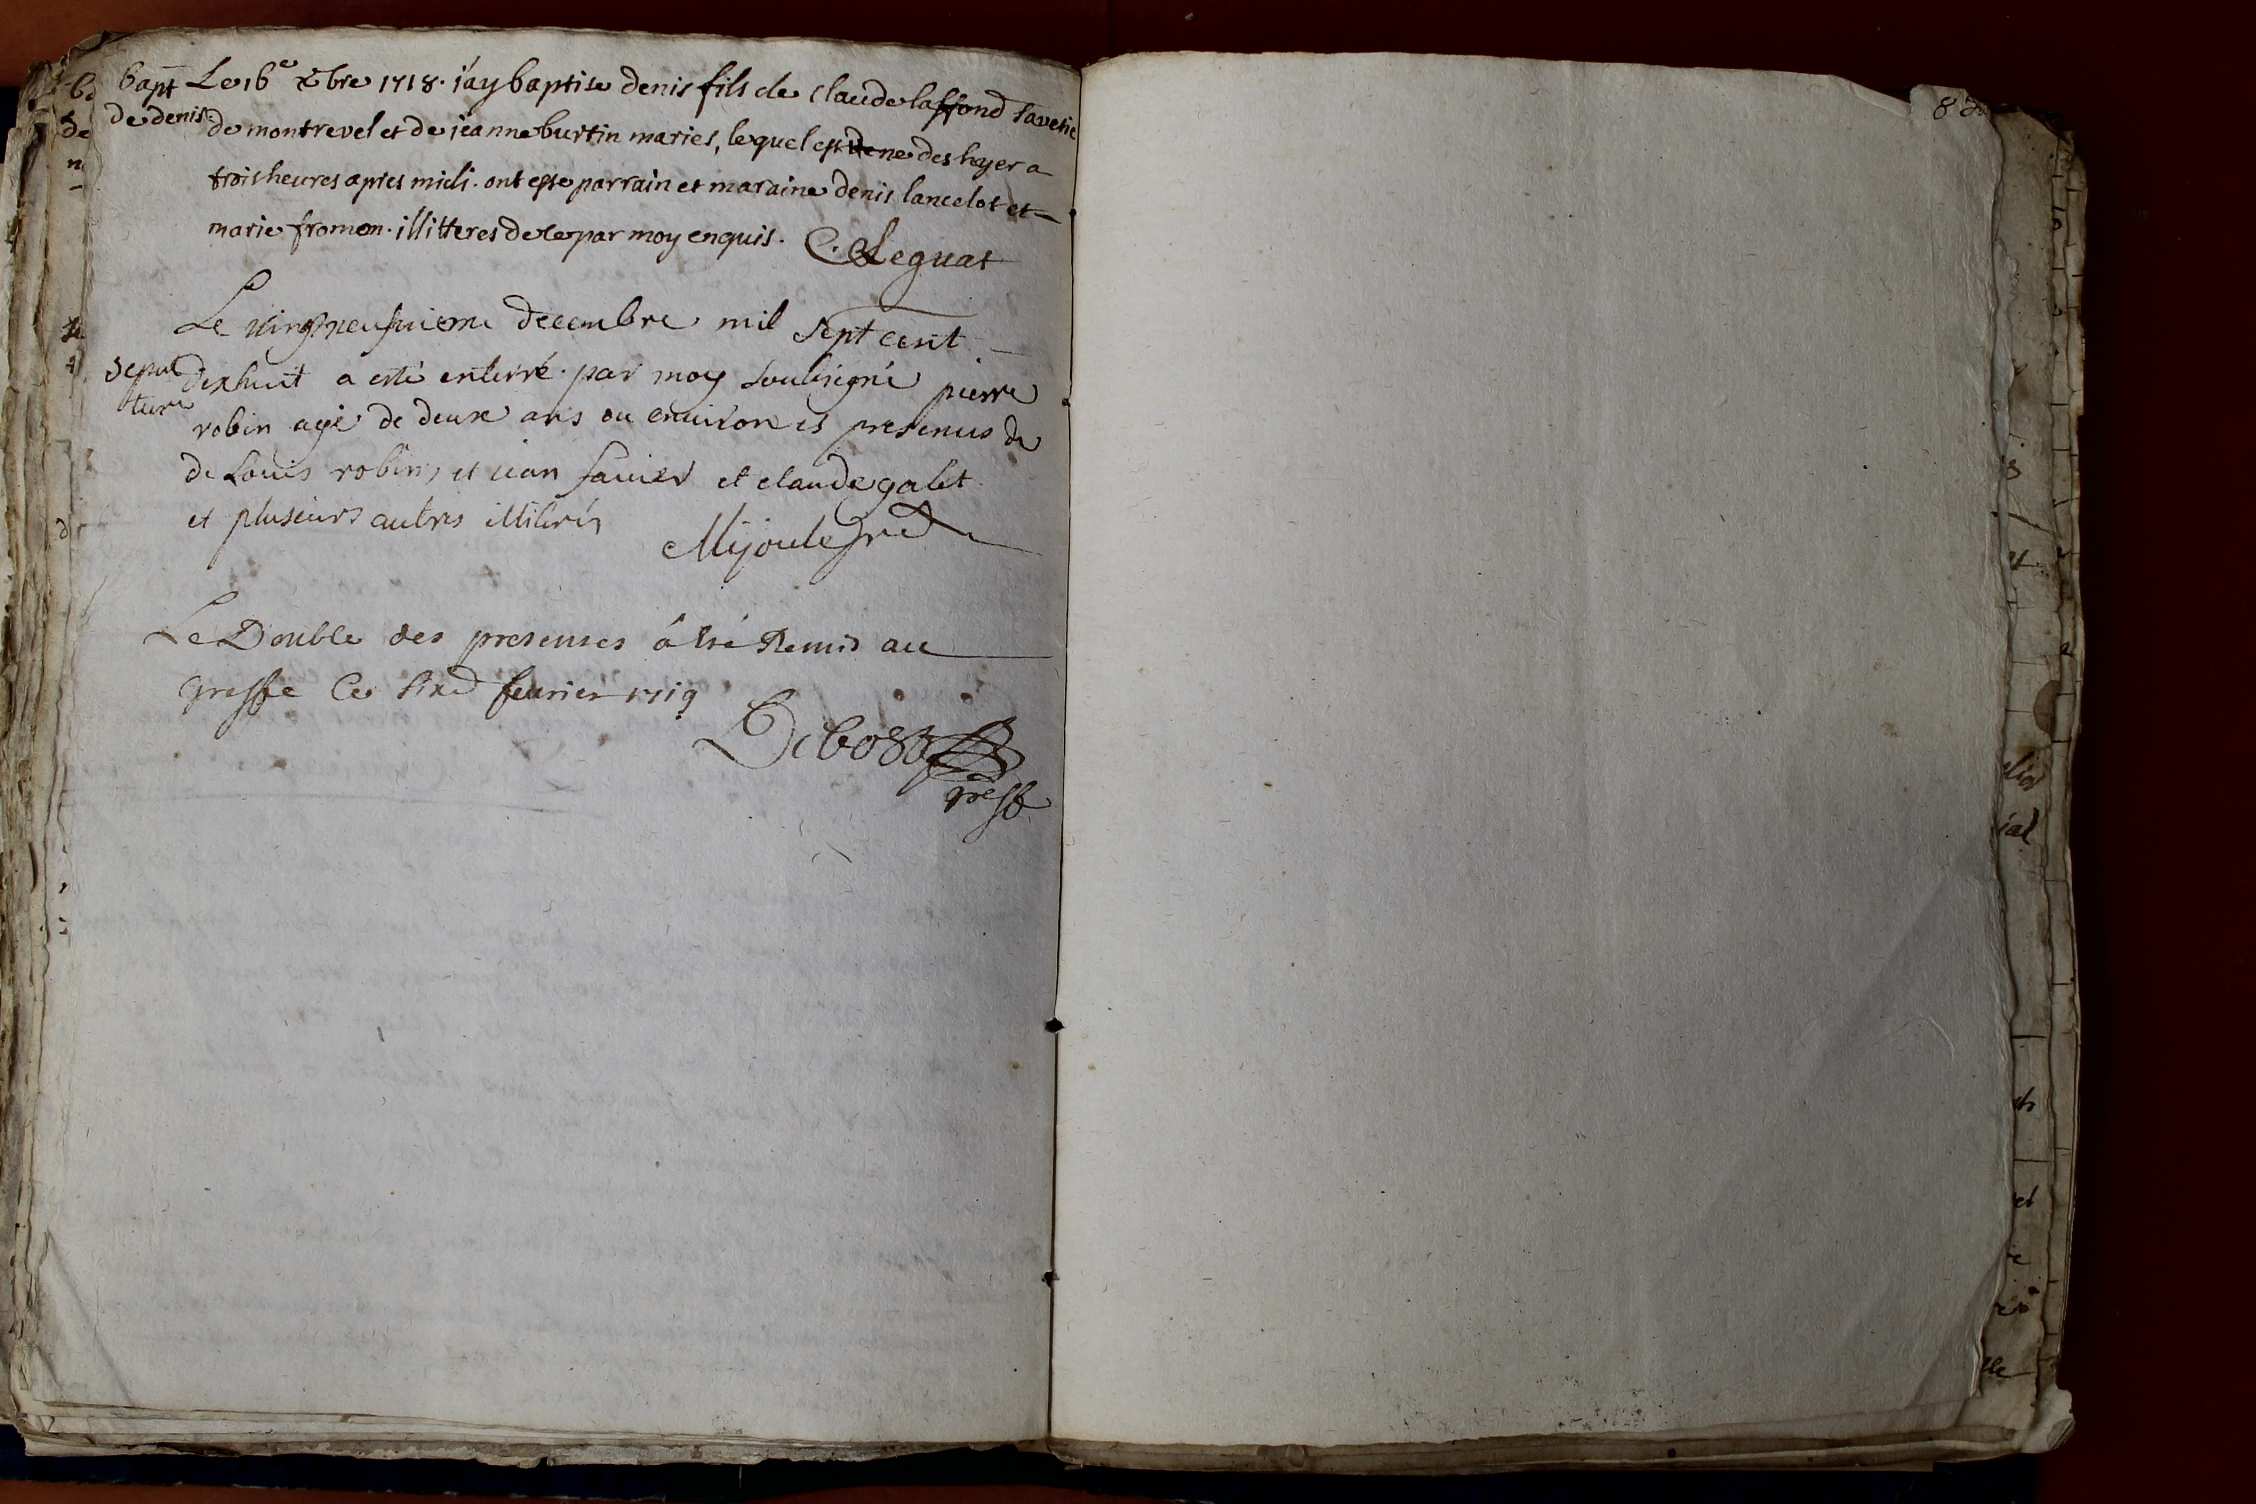 bapt
de denis
Le 16e xbre 1718. i'ay baptise denis fils de claude laffond savetie
de montrevel et de jeanne burtin maries, lequel est des hyer a
trois heures apres midi. ont este parrain et maraine denis lancelot et
marie fromon. illitteres de ce par moy enquis.
C. Leguat
Le vingtneufvieme decembre mil sept cent
sepul
ture
dixhuit a esté enterré par moy soubsigné pierre
robin agé de deux ans ou environ es presences de
de Louis robin, et jean favier et claude galet
et plusieurs autres illiterés
Mijoule
Le Double des presentes â été Remis au
Greffe Ce sixe fevrier 1719
Debost
greff